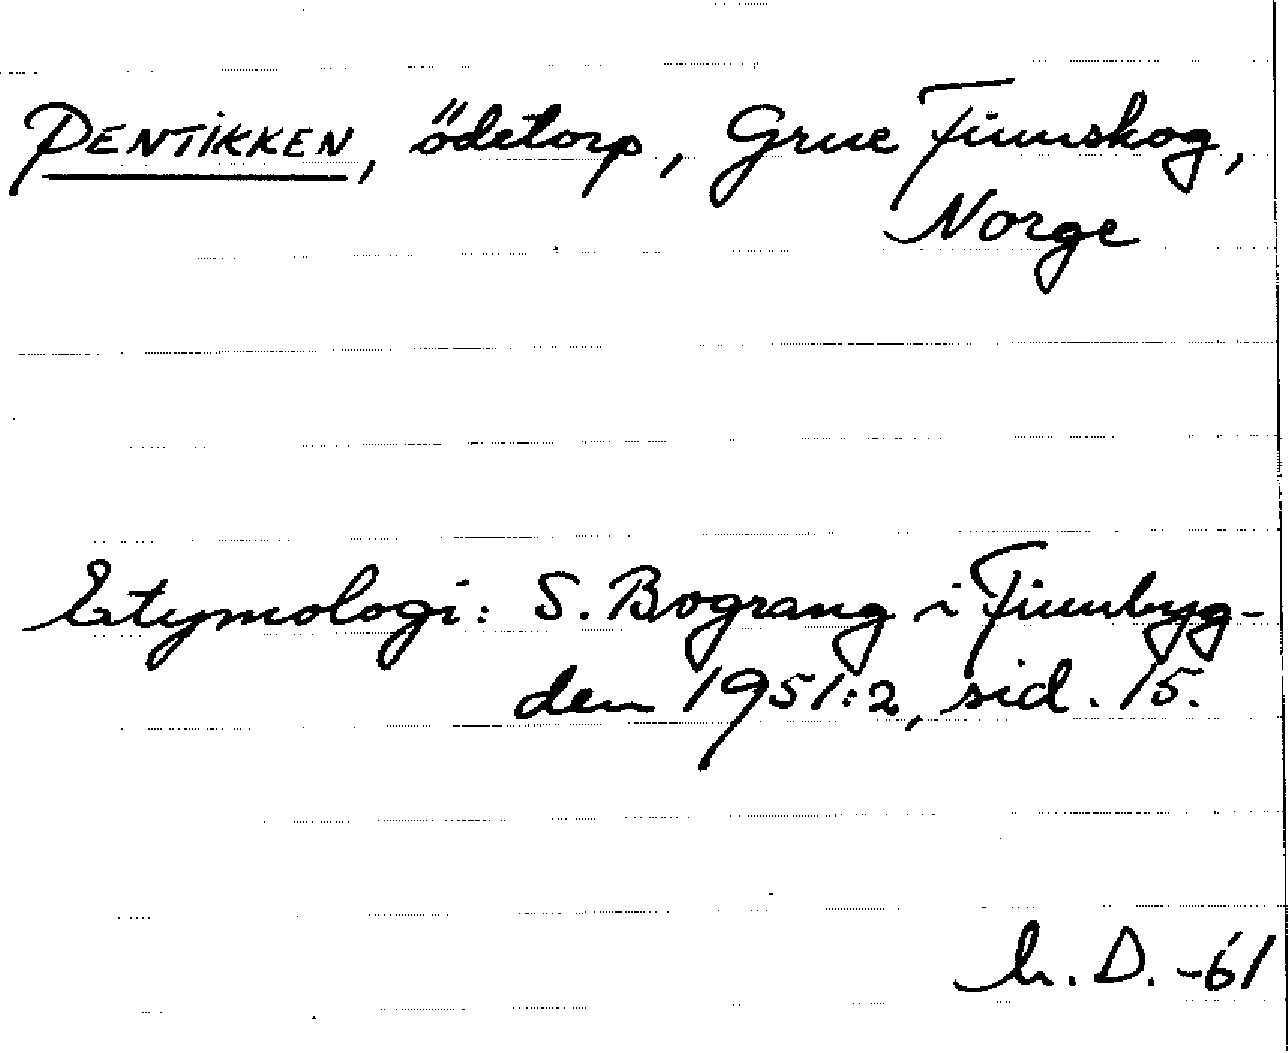 PENTIKKEN, ödetorp, Grue Finnskog,
Norge
Etymologi: S. Bograng i Finnbyg-
den 1951:2, sid. 15.
D. -61